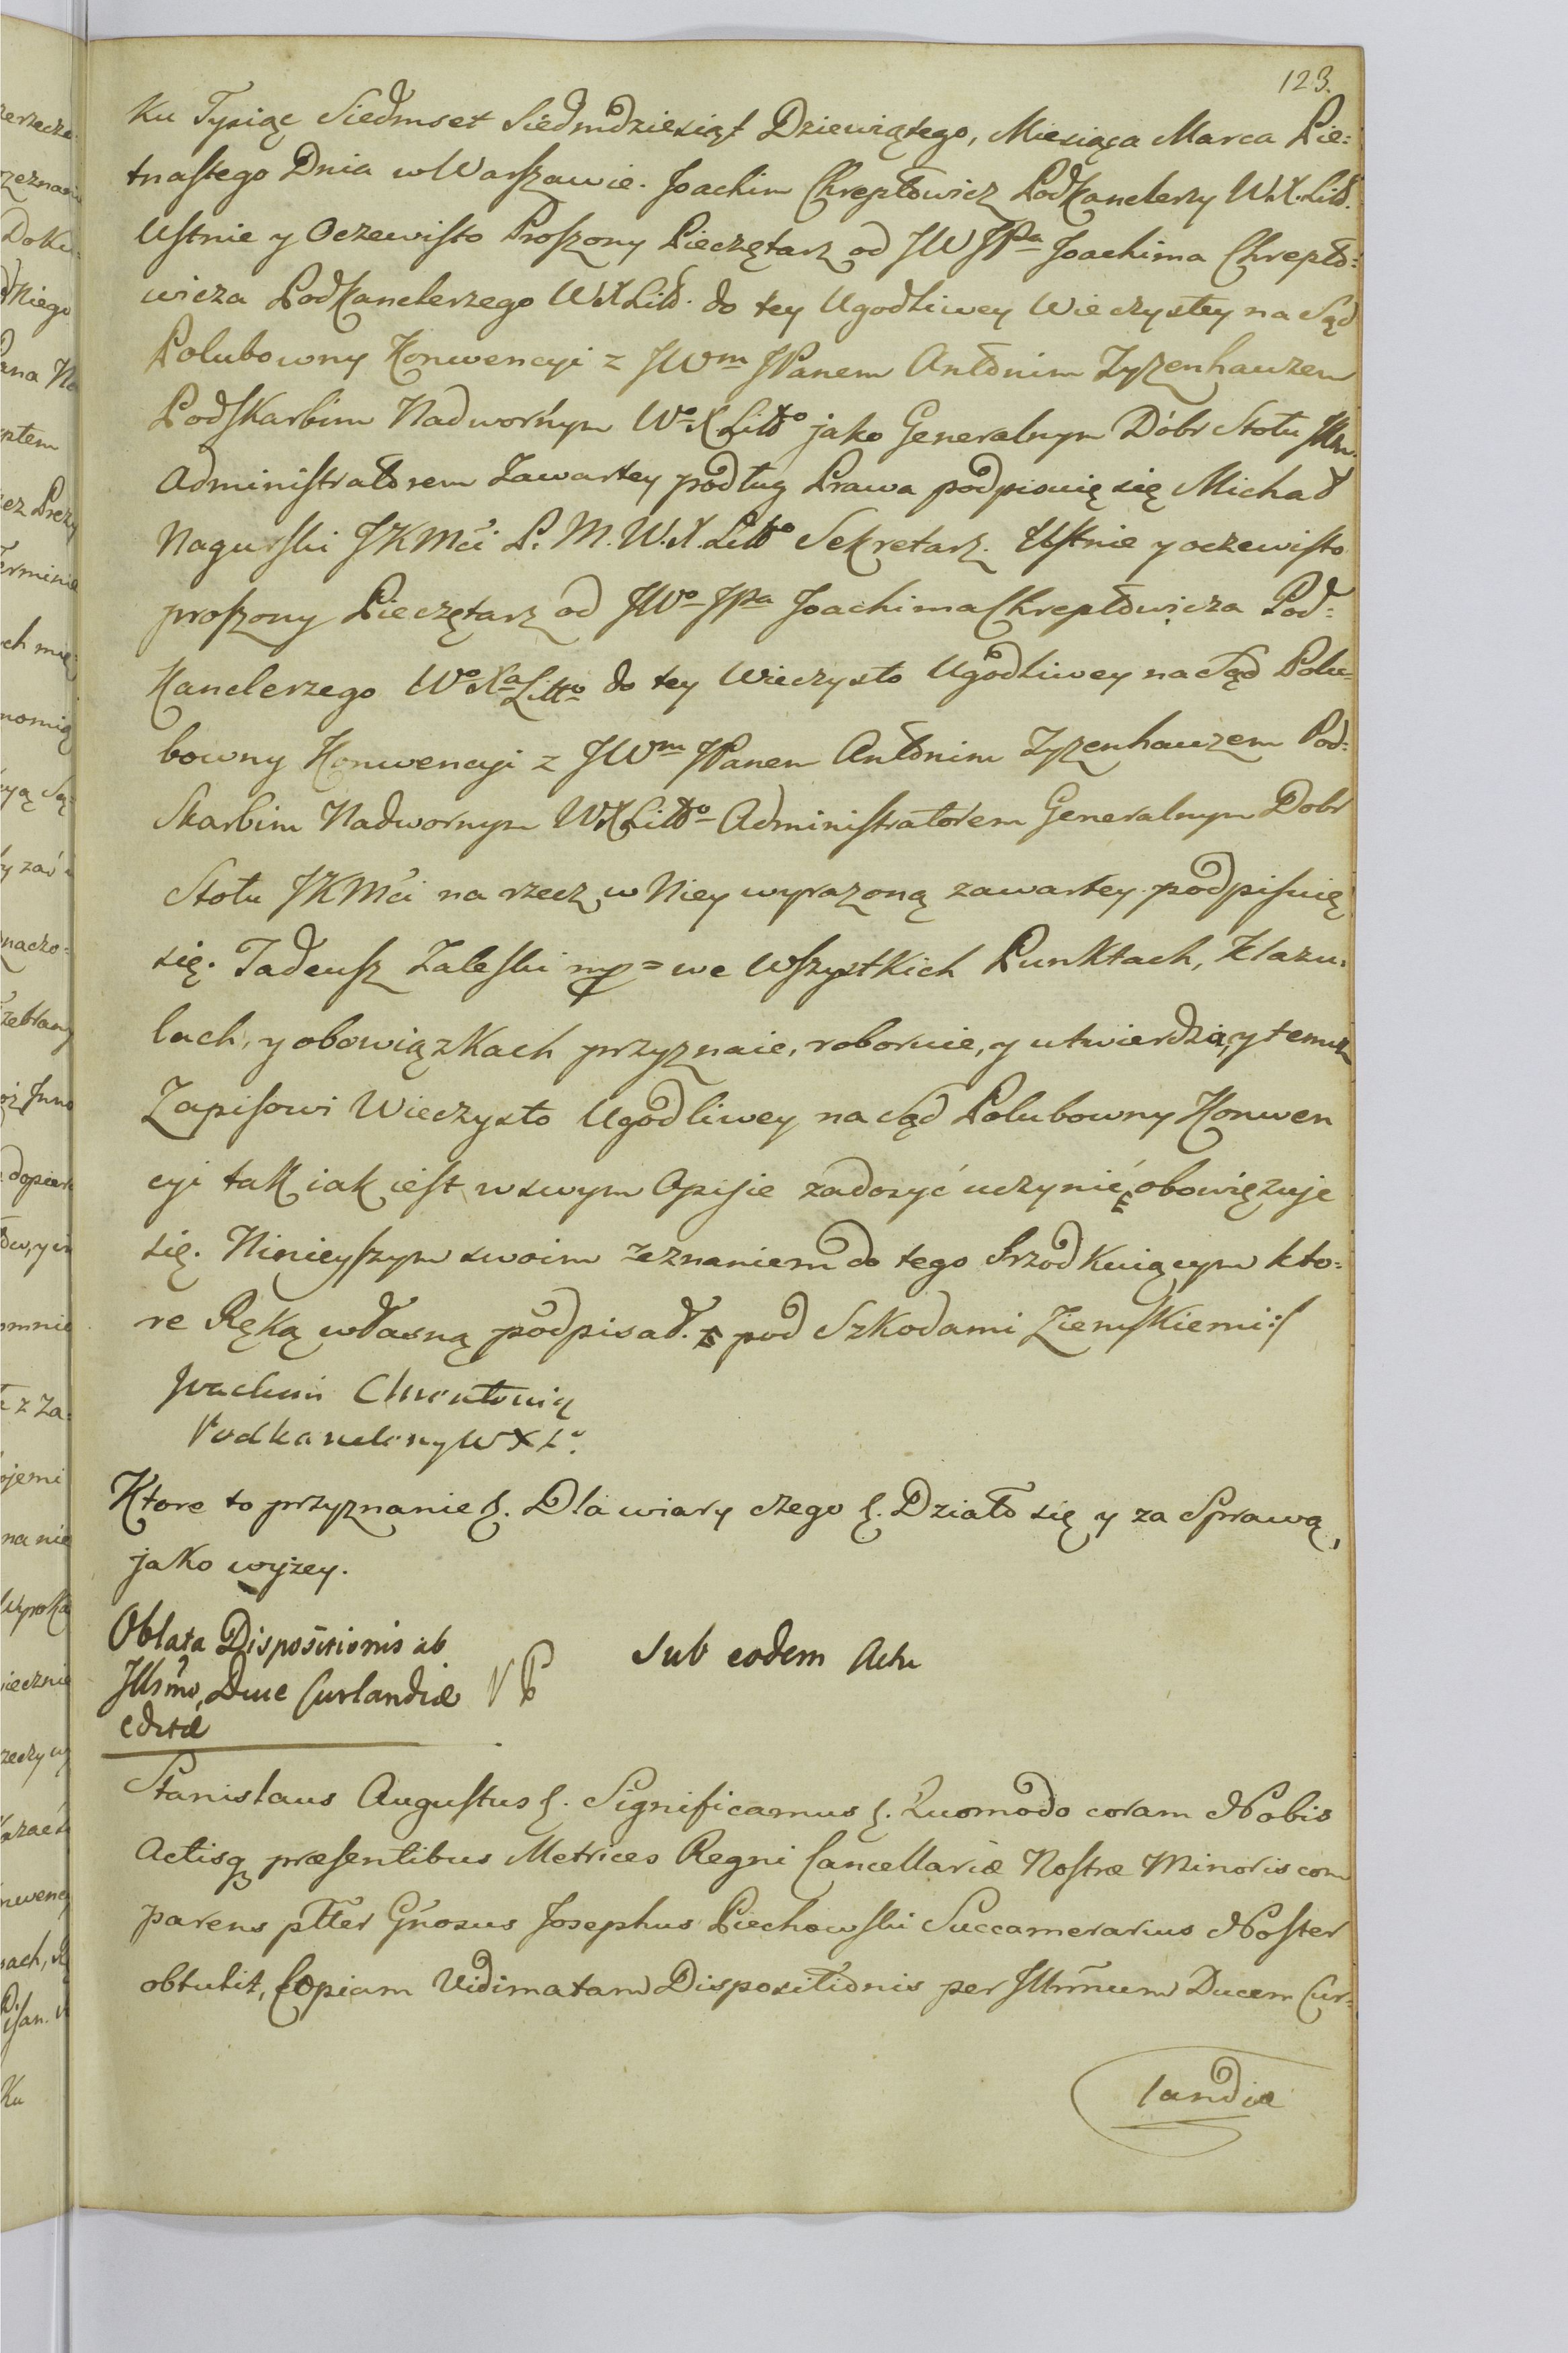 123.
Ku Tysiąc Siedmset Siedmdziesiąt Dziewiątego, Miesiąca Marca Pie:
tnastego Dnia w Warszawie. Joachim Chreptowicz PodKanclerzy W.X.Litt.
Ustnie y Oczewisto Proszony Pieczętarz od JW JPa Joachima Chrepto:
wicza PodKanclerzego WXLitt. do tey Ugodliwey Wieczystey na Sąd
Polubowny Konwencyi z JWm JPanem Antonim Tyzenhauzem
PodSkarbim Nadwornym Wo X Litto jako Generalnym Dóbr Stołu JKm.
Administratorem Zawartey podług Prawa podpisuię się Michał
Nagurski JKMći P. M. W.X.Litto Sekretarz. Ustnie y oczewisto
proszony Pieczętarz od JWo JPa Joachima Chreptowicza Pod:
Kanclerzego Wo Xa Litto do tey Wieczysto Ugodliwey na Sąd Polu-
bowny Konwencyi z JWm JPanem Antonim Tyzenhauzem Pod:
Skarbim Nadwornym WXLitto Administratorem Generalnym Dobr
Stołu JKMći na rzecz w Niey wyrazoną zawartey podpisuię
się. Tadeusz Zaleski mp = we Wszystkich Punktach, Klazu:
lach, y obowiązkach przyznaie, roboruie, y utwierdza, y temu
Zapisowi Wieczysto Ugodliwey na Sąd Polubowny Konwen
cyi tak iak iest w swym Opisie zadosyć uczynić obowięzuje
się. Ninieyszym swoim zeznaniem do tego srzodkuiącym kto:
re Ręką własną podpisał. pod Szkodami Ziemskiemi:/
Joachim Chreptowicz
Podkanclerzy W X L.
Ktore to przyznanie &. Dla wiary czego &. Działo się y za Sprawą,
jako wyżey.
Oblata Dispositionis ab
Illsmo, Duce Curlandiæ
editæ
Sub eodem Actu
Stanislaus Augustus &. Significamus &. Quomodo coram Nobis
Actisq præsentibus Metrices Regni Cancellariæ Nostræ Minoris com
parens ptter Gnosus Josephus Piechowski Succamerarius Noster
obtulit, Copiam Vidimatam Dispositionis per Illmum Ducem Cur-
landiæ